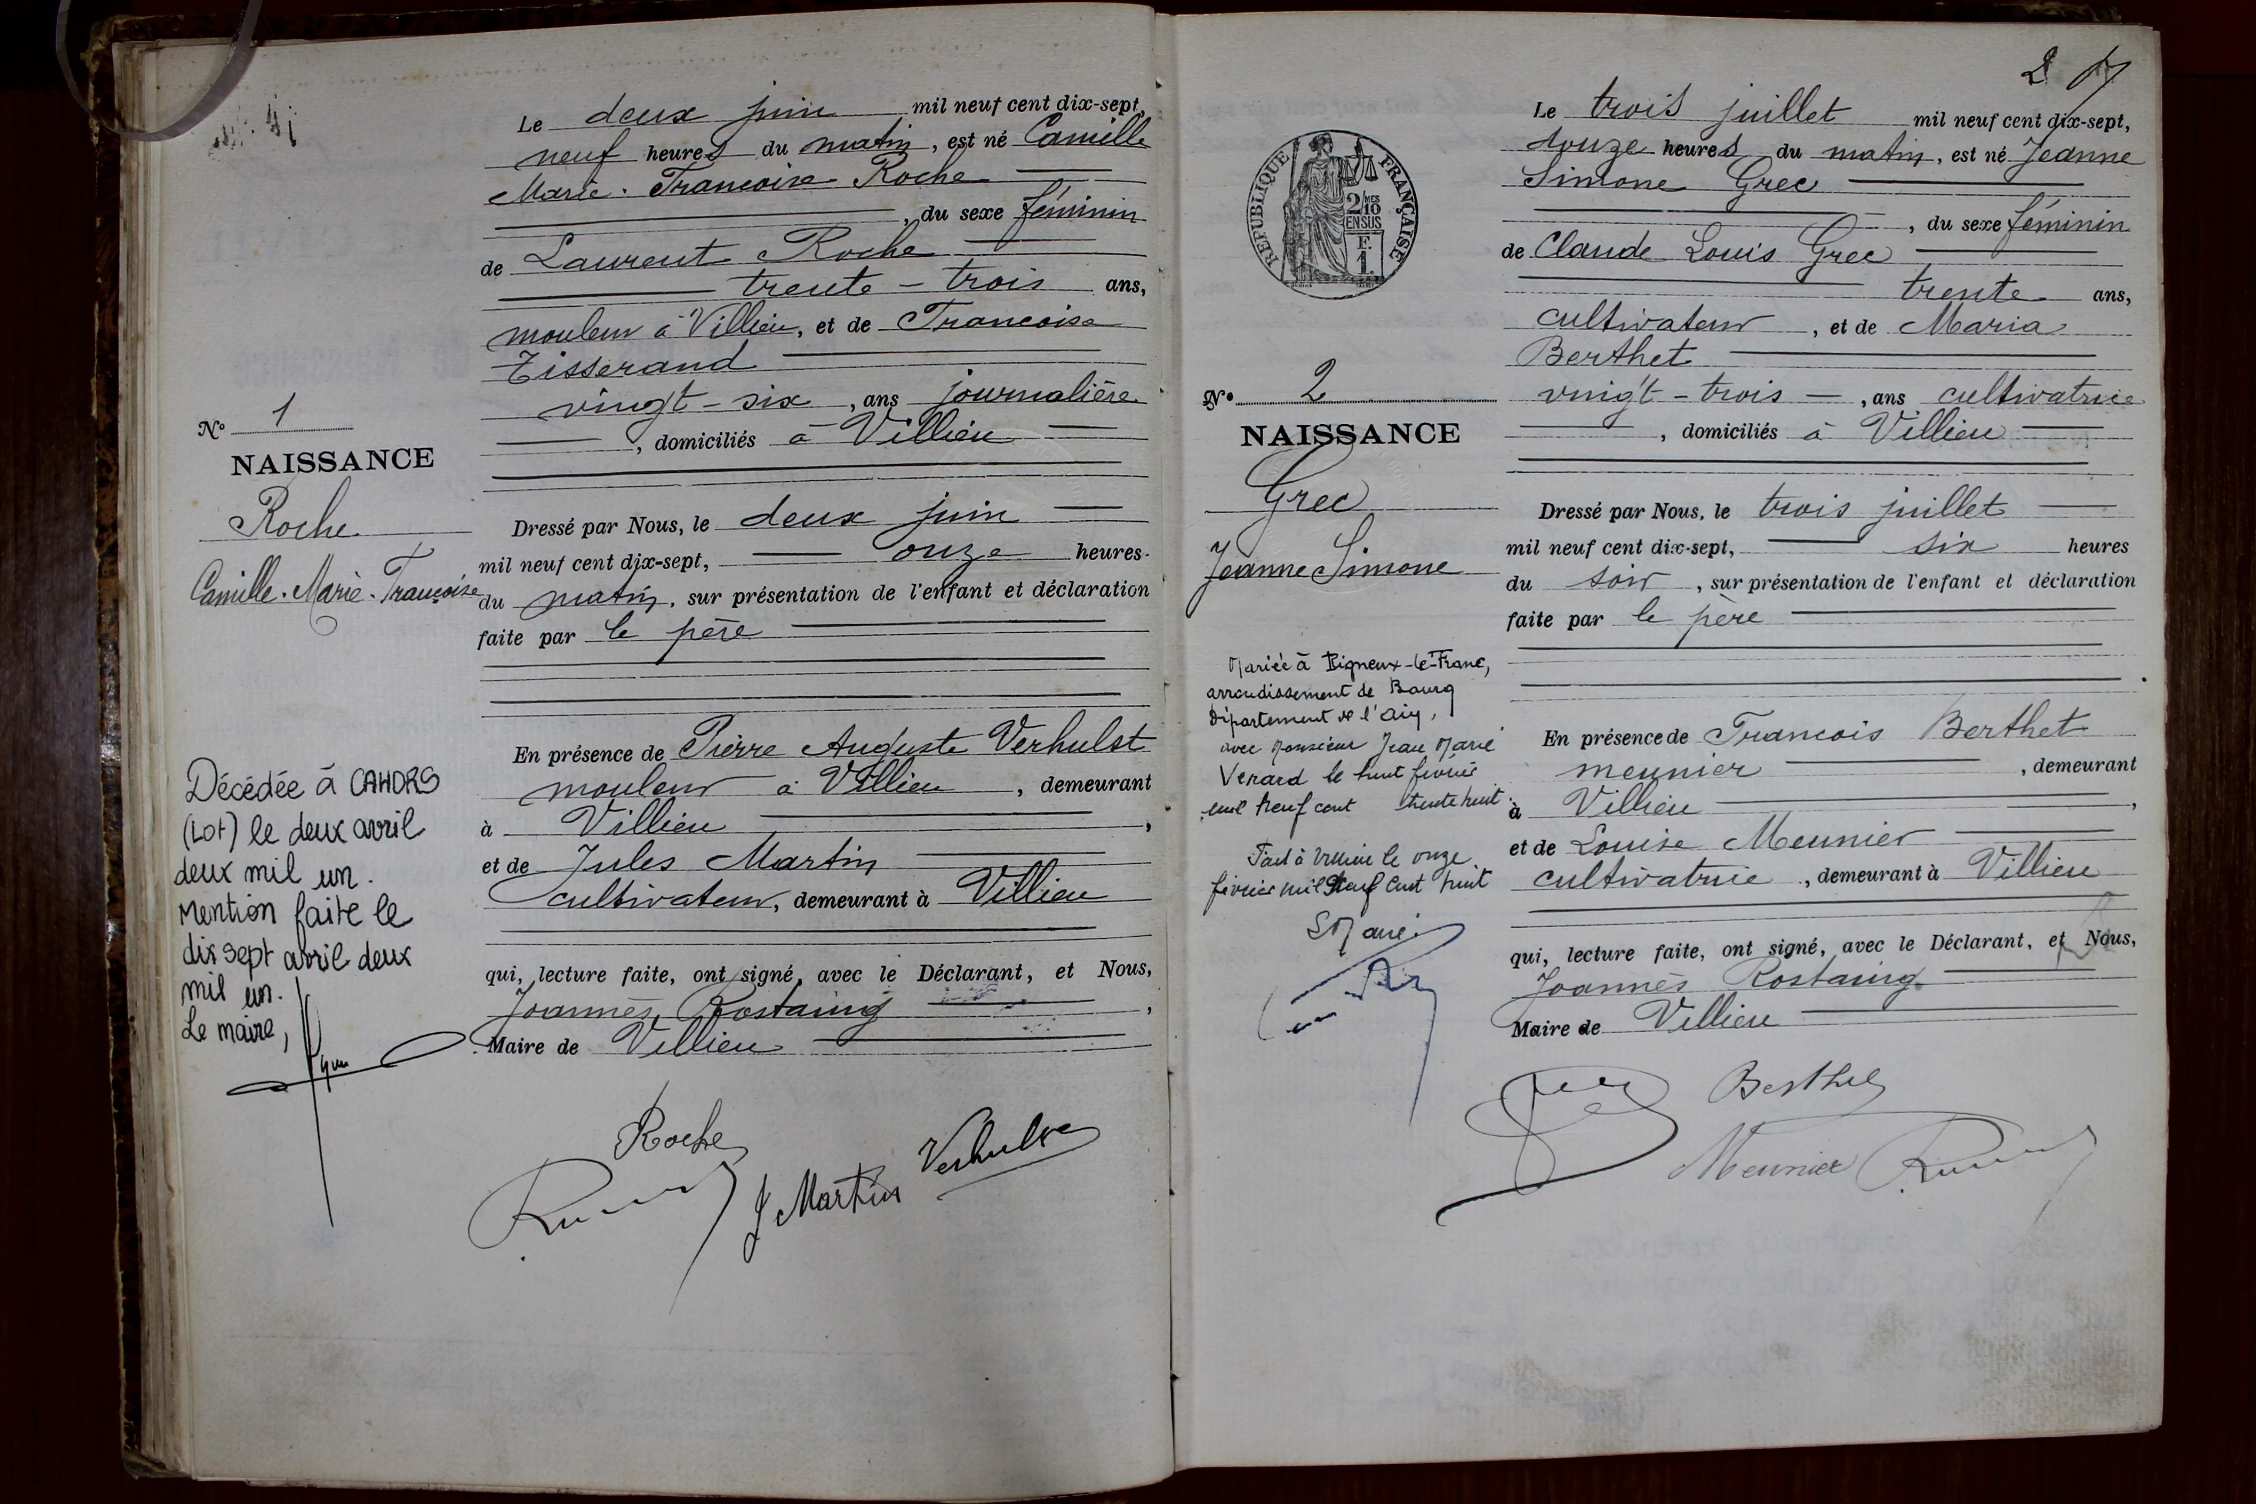 Le deux juin mil neuf cent dix-sept,
neuf heures du matin, est né Camille
Marie-Françoise Roche
, du sexe féminin
de Laurent Roche
trente-trois ans,
mouleur à Villieu, et de Françoise
Tisserand
vingt-six, ans journalière
, domiciliés à Villieu
Nº 1
NAISSANCE
Roche
Camille-Marie-Françoise
Dressé par Nous, le deux juin
mil neuf cent dix-sept, onze heures
du matin, sur présentation de l'enfant et déclaration
faite par le père
En présence de Pierre Auguste Verhulst
mouleur à Villieu, demeurant
à Villieu,
et de Jules Martin
cultivateur, demeurant à Villieu
qui, lecture faite, ont signé, avec le Déclarant, et Nous,
Joannès Rostaing,
Maire de Villieu
Décédée à CAHORS
(Lot) le deux avril
deux mil un.
Mention faite le
dix sept avril deux
mil un.
Le maire,
Roche
J Martin
Verhulst
2
Le trois juillet mil neuf cent dix-sept,
douze heures du matin, est né Jeanne
Simone Grec
, du sexe féminin
de Claude Louis Grec
trente ans,
cultivateur, et de Maria
Berthet
vingt-trois, ans cultivatrice
, domiciliés à Villieu
RÉPUBLIQUE FRANÇAISE
2/10 MES
EN SUS
F.
1.
Nº 2
NAISSANCE
Grec
Jeanne Simone
Dressé par Nous, le trois juillet
mil neuf cent dix-sept, six heures
du soir, sur présentation de l'enfant et déclaration
faite par le père
En présence de François Berthet
meunier, demeurant
à Villieu,
et de Louise Meunier
cultivatrice, demeurant à Villieu
qui, lecture faite, ont signé, avec le Déclarant, et Nous,
Joannès Rostaing
Maire de Villieu
Mariée à Pigneux-le-Franc,
arrondissement de Bourg
Département de l'Ain,
avec Monsieur Jean Marie
Venard le huit février
mil neuf cent trente huit.
Fait à Villieu le onze
février mil neuf cent huit
Berthet
Meunier